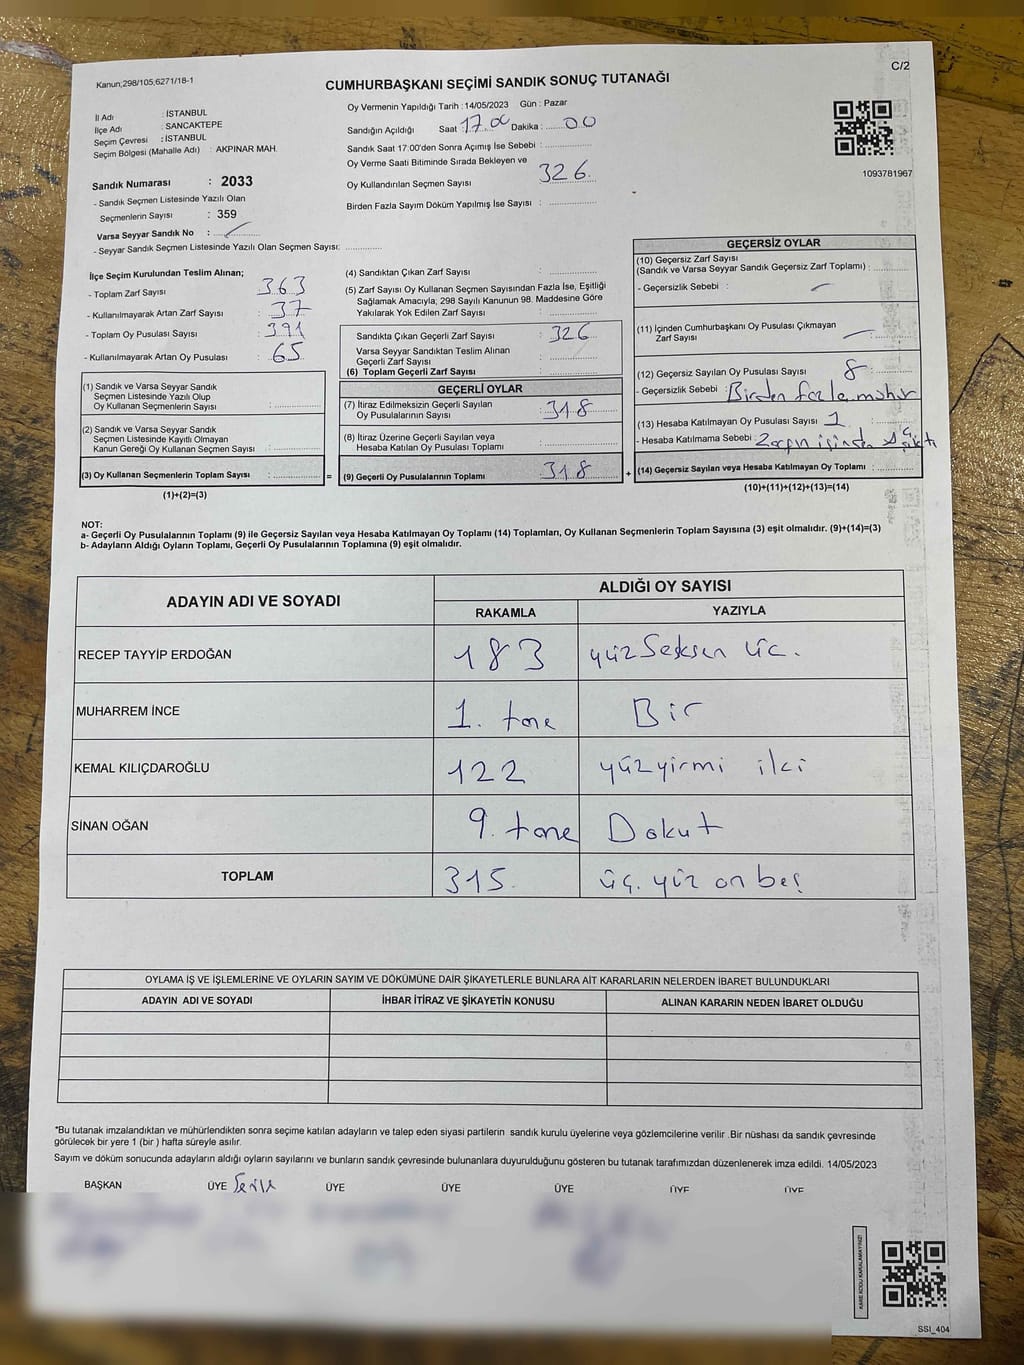 Kanun;298/105,6271/18-1
C/2
CUMHURBAŞKANI SEÇİMİ SANDIK SONUÇ TUTANAĞI
İl Adı : İSTANBUL
İlçe Adı : SANCAKTEPE
Seçim Çevresi : İSTANBUL
Seçim Bölgesi (Mahalle Adı) : AKPINAR MAH.
Sandık Numarası : 2033
- Sandık Seçmen Listesinde Yazılı Olan
Seçmenlerin Sayısı : 359
Varsa Seyyar Sandık No :
- Seyyar Sandık Seçmen Listesinde Yazılı Olan Seçmen Sayısı:
Oy Vermenin Yapıldığı Tarih : 14/05/2023 Gün : Pazar
Sandığın Açıldığı Saat : 17.00 Dakika : 00
Sandık Saat 17:00'den Sonra Açımış İse Sebebi :
Oy Verme Saati Bitiminde Sırada Bekleyen ve
Oy Kullandırılan Seçmen Sayısı : 326
Birden Fazla Sayım Döküm Yapılmış İse Sayısı :
1093781967
İlçe Seçim Kurulundan Teslim Alınan;
- Toplam Zarf Sayısı : 363
- Kullanılmayarak Artan Zarf Sayısı : 37
- Toplam Oy Pusulası Sayısı : 391
- Kullanılmayarak Artan Oy Pusulası : 65
(1) Sandık ve Varsa Seyyar Sandık
Seçmen Listesinde Yazılı Olup
Oy Kullanan Seçmenlerin Sayısı :
(2) Sandık ve Varsa Seyyar Sandık
Seçmen Listesinde Kayıtlı Olmayan
Kanun Gereği Oy Kullanan Seçmen Sayısı :
(3) Oy Kullanan Seçmenlerin Toplam Sayısı : =
(1)+(2)=(3)
(4) Sandıktan Çıkan Zarf Sayısı :
(5) Zarf Sayısı Oy Kullanan Seçmen Sayısından Fazla İse, Eşitliği
Sağlamak Amacıyla; 298 Sayılı Kanunun 98. Maddesine Göre
Yakılarak Yok Edilen Zarf Sayısı :
Sandıkta Çıkan Geçerli Zarf Sayısı : 326
Varsa Seyyar Sandıktan Teslim Alınan
Geçerli Zarf Sayısı :
(6) Toplam Geçerli Zarf Sayısı :
GEÇERLİ OYLAR
(7) İtiraz Edilmeksizin Geçerli Sayılan
Oy Pusulalarının Sayısı : 318
(8) İtiraz Üzerine Geçerli Sayılan veya
Hesaba Katılan Oy Pusulası Toplamı :
(9) Geçerli Oy Pusulalarının Toplamı : 318 +
GEÇERSİZ OYLAR
(10) Geçersiz Zarf Sayısı
(Sandık ve Varsa Seyyar Sandık Geçersiz Zarf Toplamı) :
- Geçersizlik Sebebi :
(11) İçinden Cumhurbaşkanı Oy Pusulası Çıkmayan
Zarf Sayısı :
(12) Geçersiz Sayılan Oy Pusulası Sayısı : 8
- Geçersizlik Sebebi : Birden fazla mühür
(13) Hesaba Katılmayan Oy Pusulası Sayısı : 1
- Hesaba Katılmama Sebebi : Zarfın içinden çıktı
(14) Geçersiz Sayılan veya Hesaba Katılmayan Oy Toplamı :
(10)+(11)+(12)+(13)=(14)
NOT:
a- Geçerli Oy Pusulalarının Toplamı (9) ile Geçersiz Sayılan veya Hesaba Katılmayan Oy Toplamı (14) Toplamları, Oy Kullanan Seçmenlerin Toplam Sayısına (3) eşit olmalıdır. (9)+(14)=(3)
b- Adayların Aldığı Oyların Toplamı, Geçerli Oy Pusulalarının Toplamına (9) eşit olmalıdır.
ADAYIN ADI VE SOYADI ALDIĞI OY SAYISI
RAKAMLA YAZIYLA
RECEP TAYYİP ERDOĞAN 183 yüz Seksen üc.
MUHARREM İNCE 1. tane Bir
KEMAL KILIÇDAROĞLU 122 yüz yirmi iki
SİNAN OĞAN 9. tane Dokut
TOPLAM 315 üç. yüz on beş
OYLAMA İŞ VE İŞLEMLERİNE VE OYLARIN SAYIM VE DÖKÜMÜNE DAİR ŞİKAYETLERLE BUNLARA AİT KARARLARIN NELERDEN İBARET BULUNDUKLARI
ADAYIN ADI VE SOYADI İHBAR İTİRAZ VE ŞİKAYETİN KONUSU ALINAN KARARIN NEDEN İBARET OLDUĞU
*Bu tutanak imzalandıktan ve mühürlendikten sonra seçime katılan adayların ve talep eden siyasi partilerin sandık kurulu üyelerine veya gözlemcilerine verilir .Bir nüshası da sandık çevresinde
görülecek bir yere 1 (bir ) hafta süreyle asılır.
Sayım ve döküm sonucunda adayların aldığı oyların sayılarını ve bunların sandık çevresinde bulunanlara duyurulduğunu gösteren bu tutanak tarafımızdan düzenlenerek imza edildi. 14/05/2023
BAŞKAN ÜYE ÜYE ÜYE ÜYE ÜYE ÜYE
KARE KODU KARALAMAYINIZ!
SSI_404